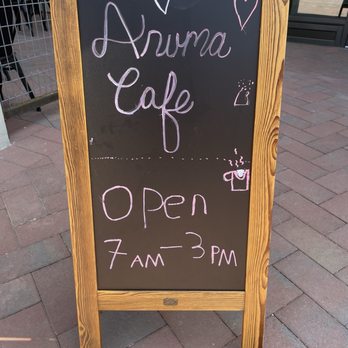 Aroma
Cafe
Open
7 AM - 3 PM